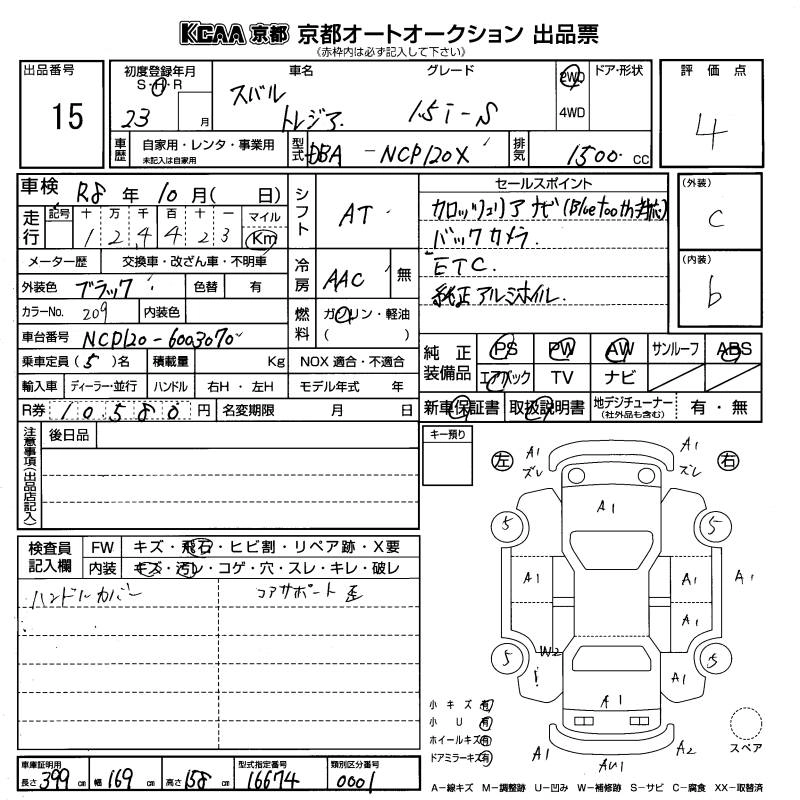 KCAA 京都 京都オートオークション 出品票
(赤枠内は必ず記入して下さい)
出品番号
15
初度登録年月
S・H・R
23 月
車名
スバル
トレジア
グレード
1.5i-S
2WD
4WD
ドア・形状
評価点
4
車歴
自家用・レンタ・事業用
未記入は自家用
型式
DBA -NCP120X
排気
1500 cc
車検 R8 年 10 月( 日)
走行
記号 十 万 千 百 十 一 マイル
1 2 4 4 2 3 Km
メーター歴 交換車・改ざん車・不明車
外装色 ブラック 色替 有
カラーNo. 209 内装色
車台番号 NCP120-6003070
乗車定員 (5)名 積載量 Kg
輸入車 ディーラー・並行 ハンドル 右H・左H
R券 10580 円 名変期限 月 日
シフト AT
冷房 AAC 無
燃料 ガソリン・軽油
( )
NOX 適合・不適合
モデル年式 年
セールスポイント
カロッツェリア ナビ(Bluetooth対応)
バックカメラ.
ETC.
純正アルミホイル.
(外装)
C
(内装)
b
純正装備品
PS PW AW サンルーフ ABS
エアバック TV ナビ
新車保証書 取扱説明書 地デジチューナー 有・無
(社外品も含む)
注意事項(出品店記入)
後日品
キー預り
検査員記入欄
FW キズ・飛石・ヒビ割・リペア跡・X要
内装 キズ・汚レ・コゲ・穴・スレ・キレ・破レ
ハンドルカバー
コアサポート 歪
左
右
A1
ズレ
A1
ズレ
A1
5
5
A1
A1
A1
A1
W2
5
5
A1
A1
A1
AU1
A2
小キズ 有
小U 有
ホイールキズ 有
ドアミラーキズ 有
スペア
車庫証明用
長さ 399 cm 幅 169 cm 高さ 158 cm
型式指定番号
16674
類別区分番号
0001
A−線キズ M−調整跡 U−凹み W−補修跡 S−サビ C−腐食 XX−取替済